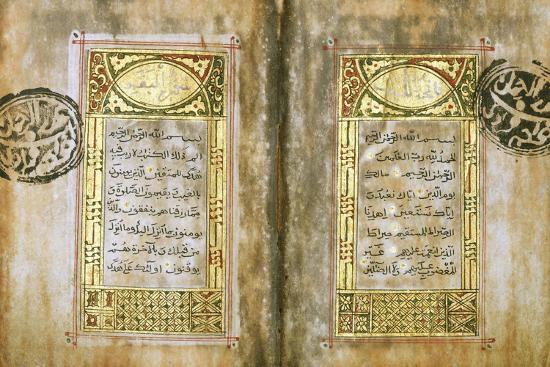 فاتحة الكتاب
بسم الله الرحمن الرحيم
الحمد لله رب العالمين
الرحمن الرحيم مالك
يوم الدين اياك نعبد و
اياك نستعين اهدنا
الصراط المستقيم صراط
الذين انعمت عليهم غير
المغضوب عليهم ولا الضالين
سورة البقرة
بسم الله الرحمن الرحيم
الم ذلك الكتب لا ريب فيه
هدى للمتقين الذين يومنون
بالغيب ويقيمون الصلوة و
مما رزقناهم ينفقون والذين
يومنون بما انزل اليك وما انزل
من قبلك وبالاخرة هم
يوقنون اولئك على هدى